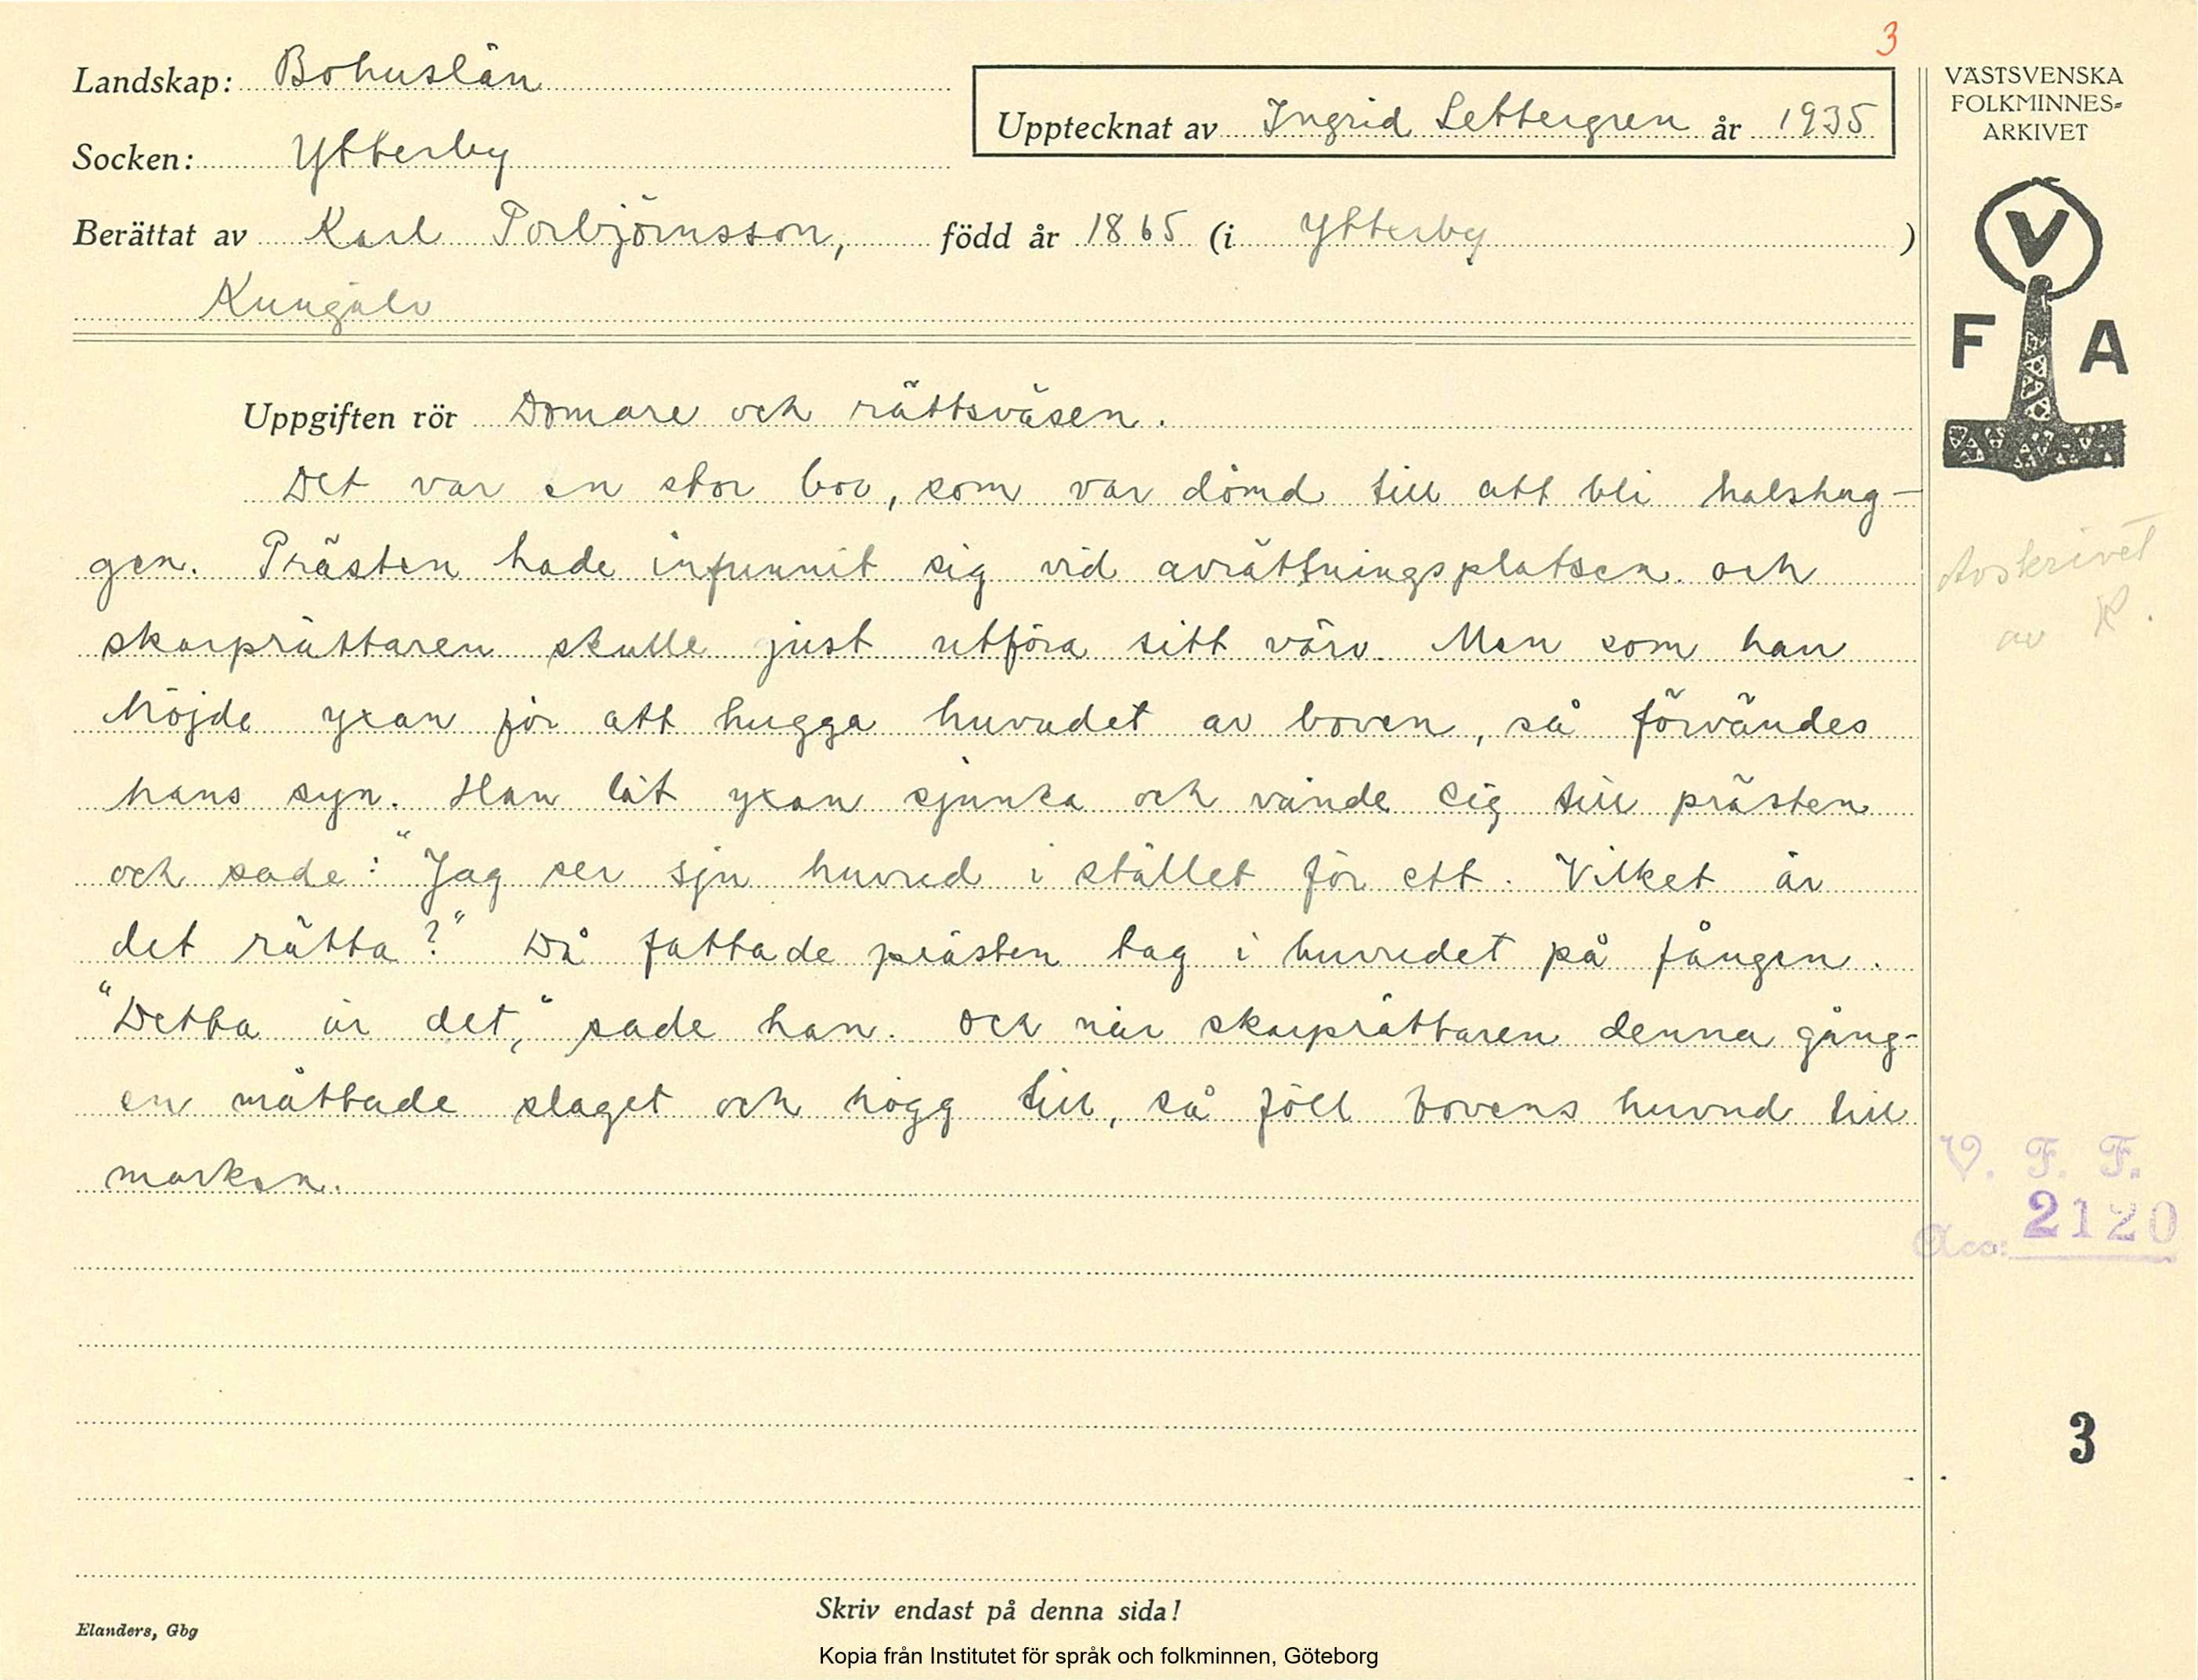 3
Landskap: Bohuslän
Socken: Ytterby
Upptecknat av Ingrid Settergren år 1935
Berättat av Karl Torbjörnsson, född år 1865 (i Ytterby )
Kungälv
VÄSTSVENSKA
FOLKMINNES-
ARKIVET
V
F A
Uppgiften rör Domare och rättsväsen.
Det var en stor bov, som var dömd till att bli halshug-
gen. Prästen hade infunnit sig vid avrättningsplatsen och
skarprättaren skulle just utföra sitt värv. Men som han
höjde yxan för att hugga huvudet av boven, så förvändes
hans syn. Han lät yxan sjunka och vände sig till prästen
och sade: "Jag ser sju huvud i stället för ett. Vilket är
det rätta?" Då fattade prästen tag i huvudet på fången.
"Detta är det," sade han. Och när skarprättaren denna gång-
en måttade slaget och högg till, så föll bovens huvud till
marken.
Avskrivet
av R.
V. F. F.
Acc: 2120
3
Skriv endast på denna sida!
Elanders, Gbg
Kopia från Institutet för språk och folkminnen, Göteborg